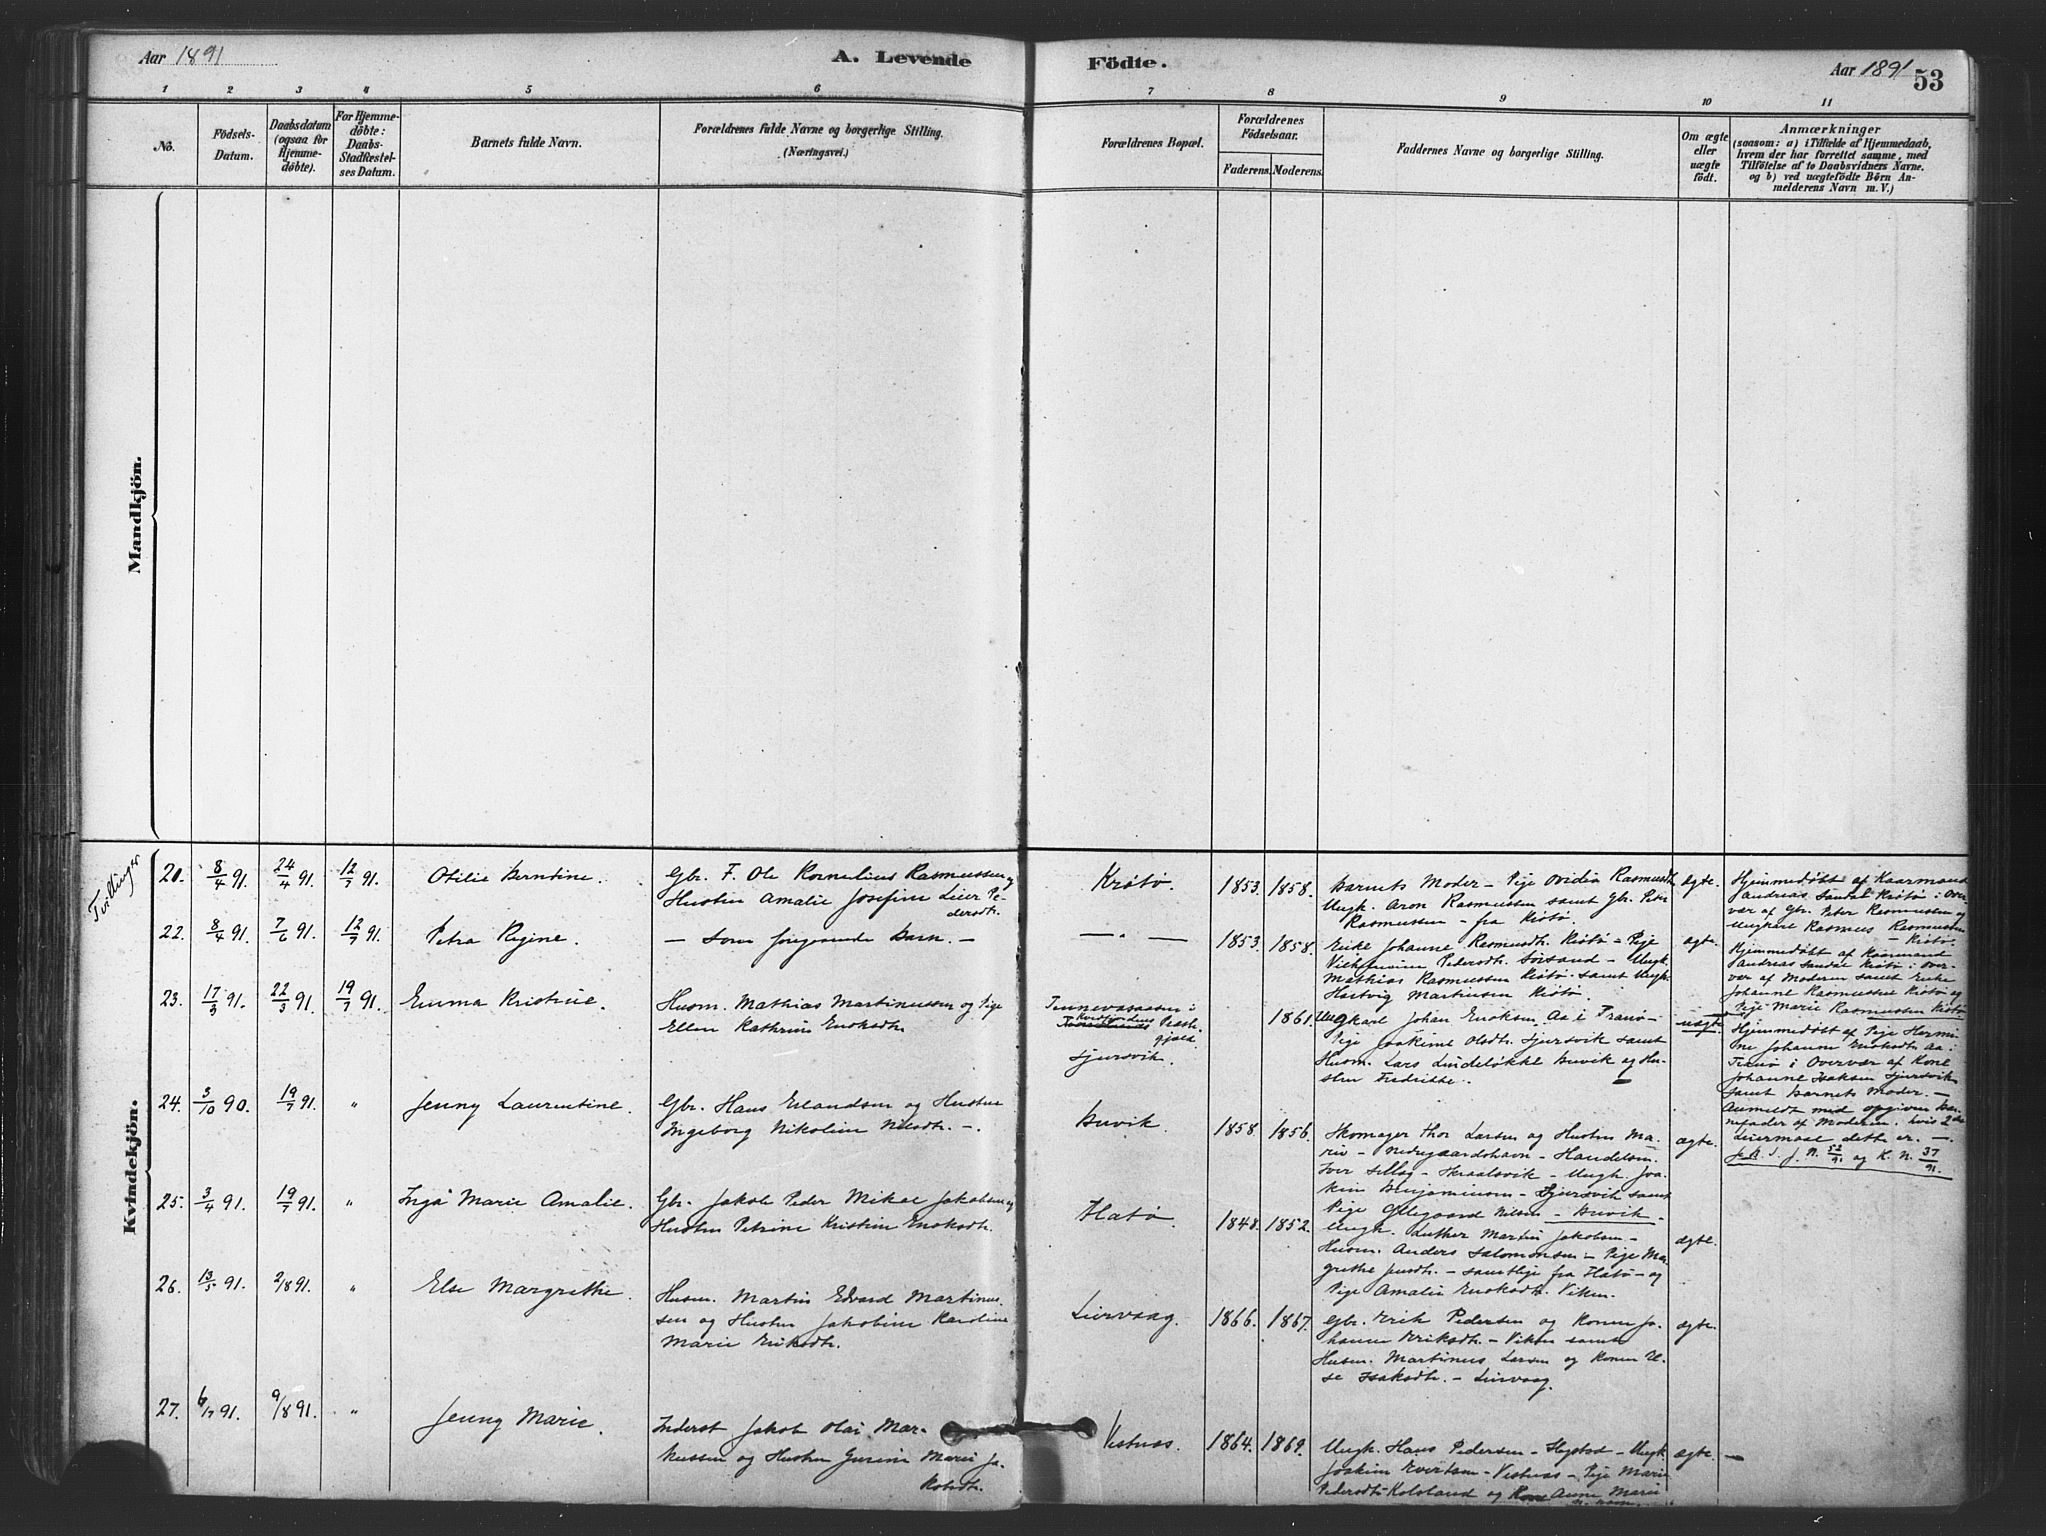 Aar 1891
A. Levende
Födte.
Aar 1891
53
1 2 3 4 5 6 7 8 9 10 11
No.
Födsels-Datum.
Daabsdatum (ogsaa for Hjemmedöbte).
For Hjemmedöbte: Daabs-Stadfæstelses Datum.
Barnets fulde Navn.
Forældrenes fulde Navne og borgerlige Stilling.
(Næringsvei.)
Forældrenes Bopæl.
Forældrenes Födselsaar.
Faderens. Moderens.
Faddernes Navne og borgerlige Stilling.
Om ægte eller uægte födt.
Anmærkninger
(saasom: a) i Tilfælde af Hjemmedaab,
hvem der har forrettet samme, med
Tilföielse af to Daabsvidners Navne.
og b) ved uægtefödte Börn An-
melderens Navn m. V.)
Mandkjön.
Kvindekjön.
Tvillinger
21. 8/4 91. 24/4 91. 12/7 91. Otilie Berntine.
Gbr. F. Ole Kornelius Rasmussen og
Hustru Amalie Josefine Leier Pe-
dersdtr.
Krötö. 1853. 1858.
Barnets Moder – Pige Ovidia Rasmusdtr.
Ungk. Aron Rasmussen samt Gbr. Peter
Rasmussen – fra Krötö.
ægte.
Hjemmedöbt af Kaarmand
Andreas Sandal Krötö i Over-
vær af Gbr. Peter Rasmussen og
Ungkarl Rasmus Rasmussen
– Krötö.
22. 8/4 91. 7/6 91. 12/7 91. Petra Regine.
– Som foregaaende Barn. –
— " — 1853. 1858.
Enke Johanne Rasmusdtr. Krötö – Pige
Vilhelmine Pedersdtr. Sörsand – Ungk.
Mathias Rasmussen Krötö samt Ungk.
Hartvig Martinsen Krötö.
ægte.
Hjemmedöbt af Kaarmand
Andreas Sandal Krötö i Over-
vær af Moderen samt Enke
Johanne Rasmussen Krötö og
Pige Marie Rasmussen Krötö
23. 17/3 91. 22/3 91. 19/7 91. Emma Kristine.
Husm. Mathias Martinussen og Pige
Ellen Kathrine Enoksdtr.
Tennevasaasen i
Kvedfjordens Præste-
gjeld.
Sjursvik.
1861.
Ungkarl Johan Enoksen Aa i Tranö –
Pige Joakime Olsdtr. Sjursvik samt
Husm. Lars Lindelökke Buvik og Hu-
stru Fredrikke. –
uægte
Hjemmedöbt af Pige Hermi-
ne Johanne Enoksdtr. Aa i
Tranö i Overvær af Kone
Johanne Isaksen Sjursvik
samt Barnets Moder. –
Anmeldt med opgiven Bar-
nefader af Moderen, hvis 2det
Leiermaal dette er. –
24. 3/10 90. 19/7 91. " Jenny Laurentine.
Gbr. Hans Erlandsen og Hustru
Ingeborg Nikoline Nilsdtr. –.
Buvik. 1858. 1856.
Skomager Thor Larsen og Hustru Ma-
rie – Nedregaardshavn – Handelsm.
Iver – Skraalsvik – Ungk. Joa-
kim Benjaminsen – Sjursvik samt
Pige Nilsen – Buvik –
ægte.
25. 3/4 91. 19/7 91. " Inga Marie Amalie.
Gbr. Jakob Peder Mikal Jakobsen og
Hustru Petrine Kristine Enoksdtr.
Flatö. 1848. 1852.
Ungk. Luther Martin Jakobsen –
Husm. Anders Salomonsen – Pige Ma-
grethe – samtlige fra Flatö – og
Pige Amalie Enoksdtr. Viken.
ægte.
26. 13/5 91. 2/8 91. " Else Margrethe.
Husm. Martin Edvard Martinus-
sen og Hustru Jakobine Karoline
Marie Eriksdtr.
Lervaag. 1866. 1867.
Gbr. Erik Pedersen og Kone Jo-
hanne Eriksdtr. – Viken samt
Husm. Martinus Larsen og Kone El-
se Isaksdtr. – Lervaag.
ægte.
27. 6/7 91. 9/8 91. " Jenny Marie.
Inderst Jakob Olai Mar-
kussen og Hustru Gurine Marie Ja-
kobsdtr.
Vestnæs. 1864. 1869.
Ungk. Hans Pedersen – – Ungk.
Joakim Evertsen – Vestnæs – Pige Marie
Pedersdtr. Kolsland og Anne Marie
ægte. —